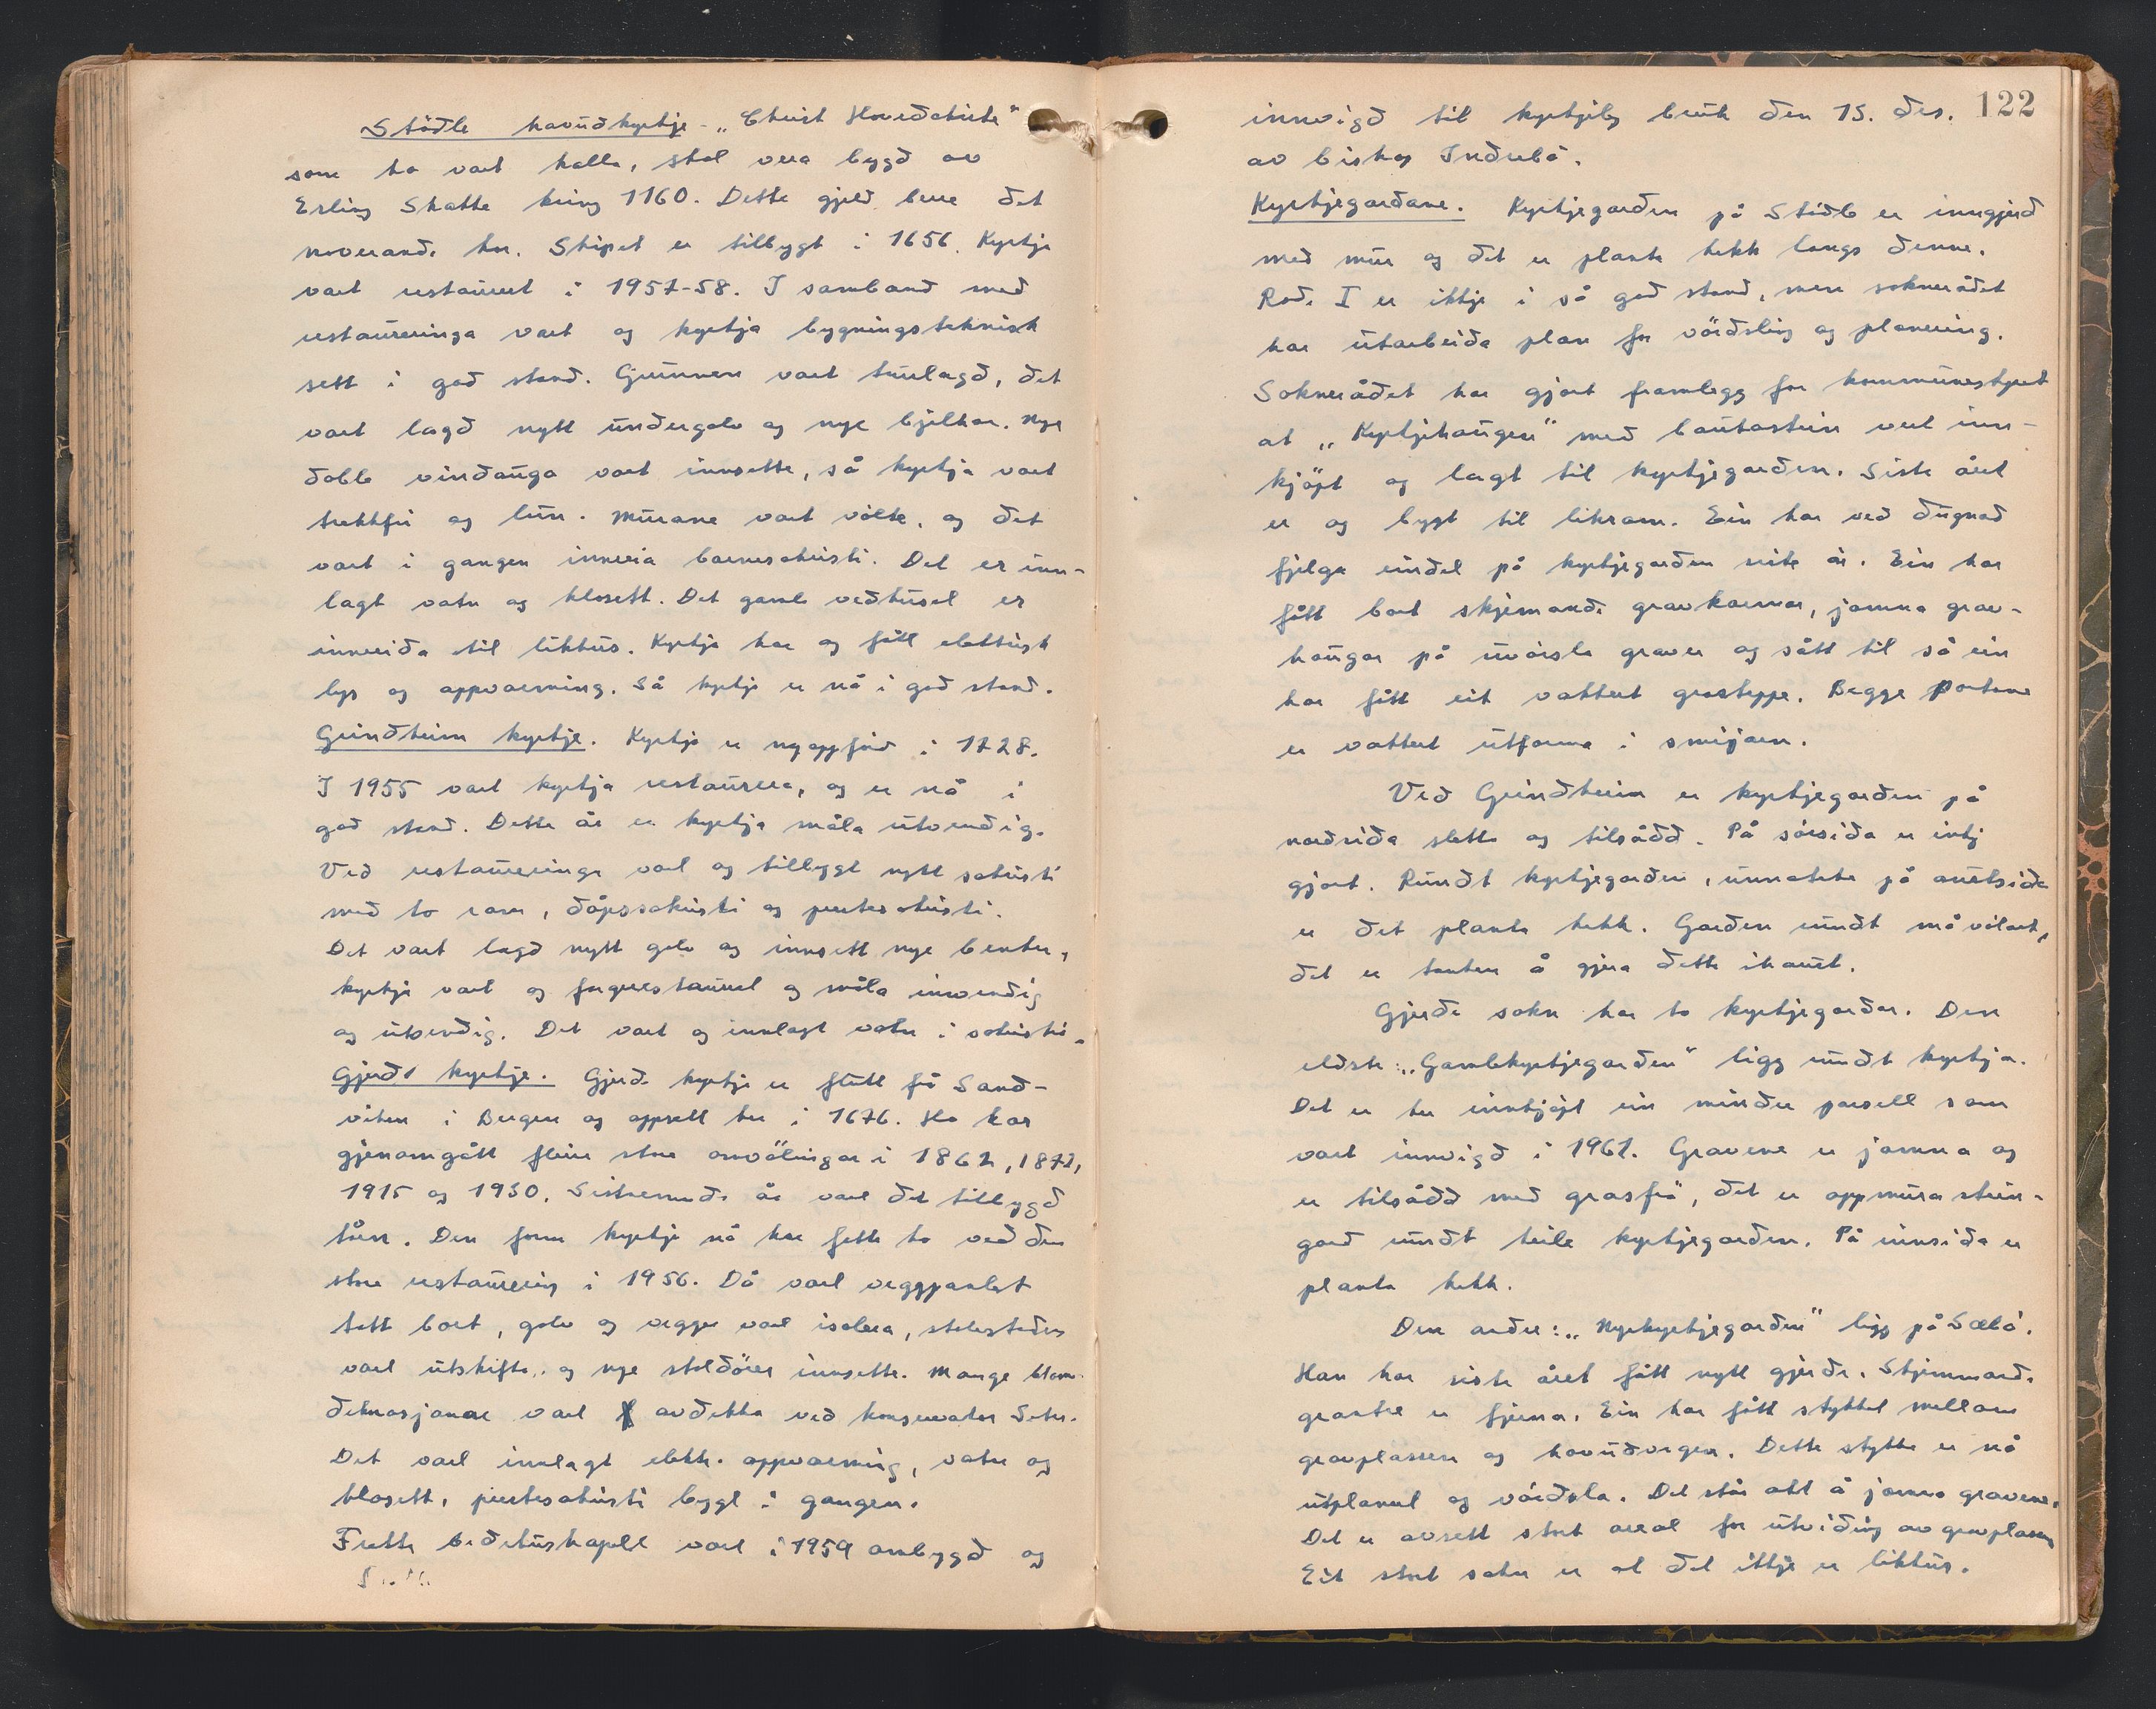 Stödle havudkyrkje - „Christ Hovedkirke"
som ho vart kalla, skal vera bygd av
Erling Skakke kring 1160. Dette gjeld berre det
noverande kor. Skipet er tilbygt i 1656. Kyrkja
vart restaurert i 1957-58. I samband med
restaureringa vart og kyrkja bygningsteknisk
sett i god stand. Grunnen vart turlagd, det
vart lagd nytt undergolv og nye bjelkar. Nye
doble vindauga vart innsette, så kyrkja vart
trekkfri og lun. Murane vart völte, og det
vart i gangen innreia barnesakristi. Det er inn-
lagt vatn og klosett. Det gamle vedhuset er
innreida til likhus. Kyrkja har og fått elektrisk
lys og oppvarming. Så kyrkja er nå i god stand.
Grindheim kyrkje. Kyrkja er nyoppförd i 1728.
I 1955 vart kyrkja restaurera, og er nå i
god stand. Dette år er kyrkja måla utvendig.
Ved restaureringa vart og tilbygt nytt sakristi
med to rom, dåpssakristi og prestesakristi.
Det vart lagd nytt golv og innsett nye benker,
kyrkja vart og fargerestaurert og måla innvendig
og utvendig. Det vart og innlagt vatn i sakristia.
Gjerde kyrkje. Gjerde kyrkje er flutt frå Sand-
viken i Bergen og oppsett her i 1676. Ho har
gjenomgått fleire store omvölingar i 1862, 1872,
1915 og 1930. Sistnemnde år vart det tilbygd
tårn. Den form kyrkja nå har fekk ho ved den
store restaurering i 1956. Då vart veggpanelet
tatt bort, golv og vegger vart isolera, stolestader
vart utskifta, og nye stoldörer innsette. Mange blom-
dekorasjonar vart avdekka ved konservator Seter.
Det vart innlagt elektr. oppvarming, vatn og
klosett, prestesakristi bygt i gangen.
Frette bedehuskapell vart i 1959 ombygd og
122
innvigd til kyrkjeleg bruk den 15. des.
av biskop Indrebö.
Kyrkjegardane. Kyrkjegarden på Stödle er inngjerd
med mur og det er planta hekk langs denne.
Rode I er ikkje i så god stand, men soknerådet
har utarbeida plan for vördsling og planering.
Soknerådet har gjort framlegg for kommunestyret
at „Kyrkjehaugen" med bautastein vert inn-
kjöpt og lagt til kyrkjegarden. Siste året
er og bygt til likrom. Ein har ved dugnad
fjelga eindel på kyrkjegarden siste år. Ein har
fått bort skjemande gravkarmar, jamna grav-
haugar på uvörsla graver og sått til så ein
har fått eit vakkert grasteppe. Begge portane
er vakkert utforma i smijarn.
Ved Grindheim er kyrkjegarden på
nordsida sletta og tilsådd. På sörsida er intkj
gjort. Rundt kyrkjegarden, unnateke på austsida
er det planta hekk. Garden rundt må völast,
det er tanken å gjera dette ihaust.
Gjerde sokn har to kyrkjegardar. Den
eldste: „Gamlekyrkjegarden" ligg rundt kyrkja.
Det er her innkjöpt ein mindre parsell som
vart innvigd i 1961. Gravene er jamna og
er tilsådd med grasfrö, det er oppmura stein-
gard rundt heile kyrkjegarden. På innsida er
planta hekk.
Den andre: „Nyekyrkjegarden" ligg på Sæbö.
Han har siste året fått nytt gjerde. Skjemmande
grantre er fjerna. Ein har fått stykket mellom
gravplassen og hovudvegen. Dette stykke er nå
utplanert og vördsla. Det står att å jamna gravene.
Det er avsett stort areal for utviding av gravplassen
Eit stort sakn er at det ikkje er likhus.